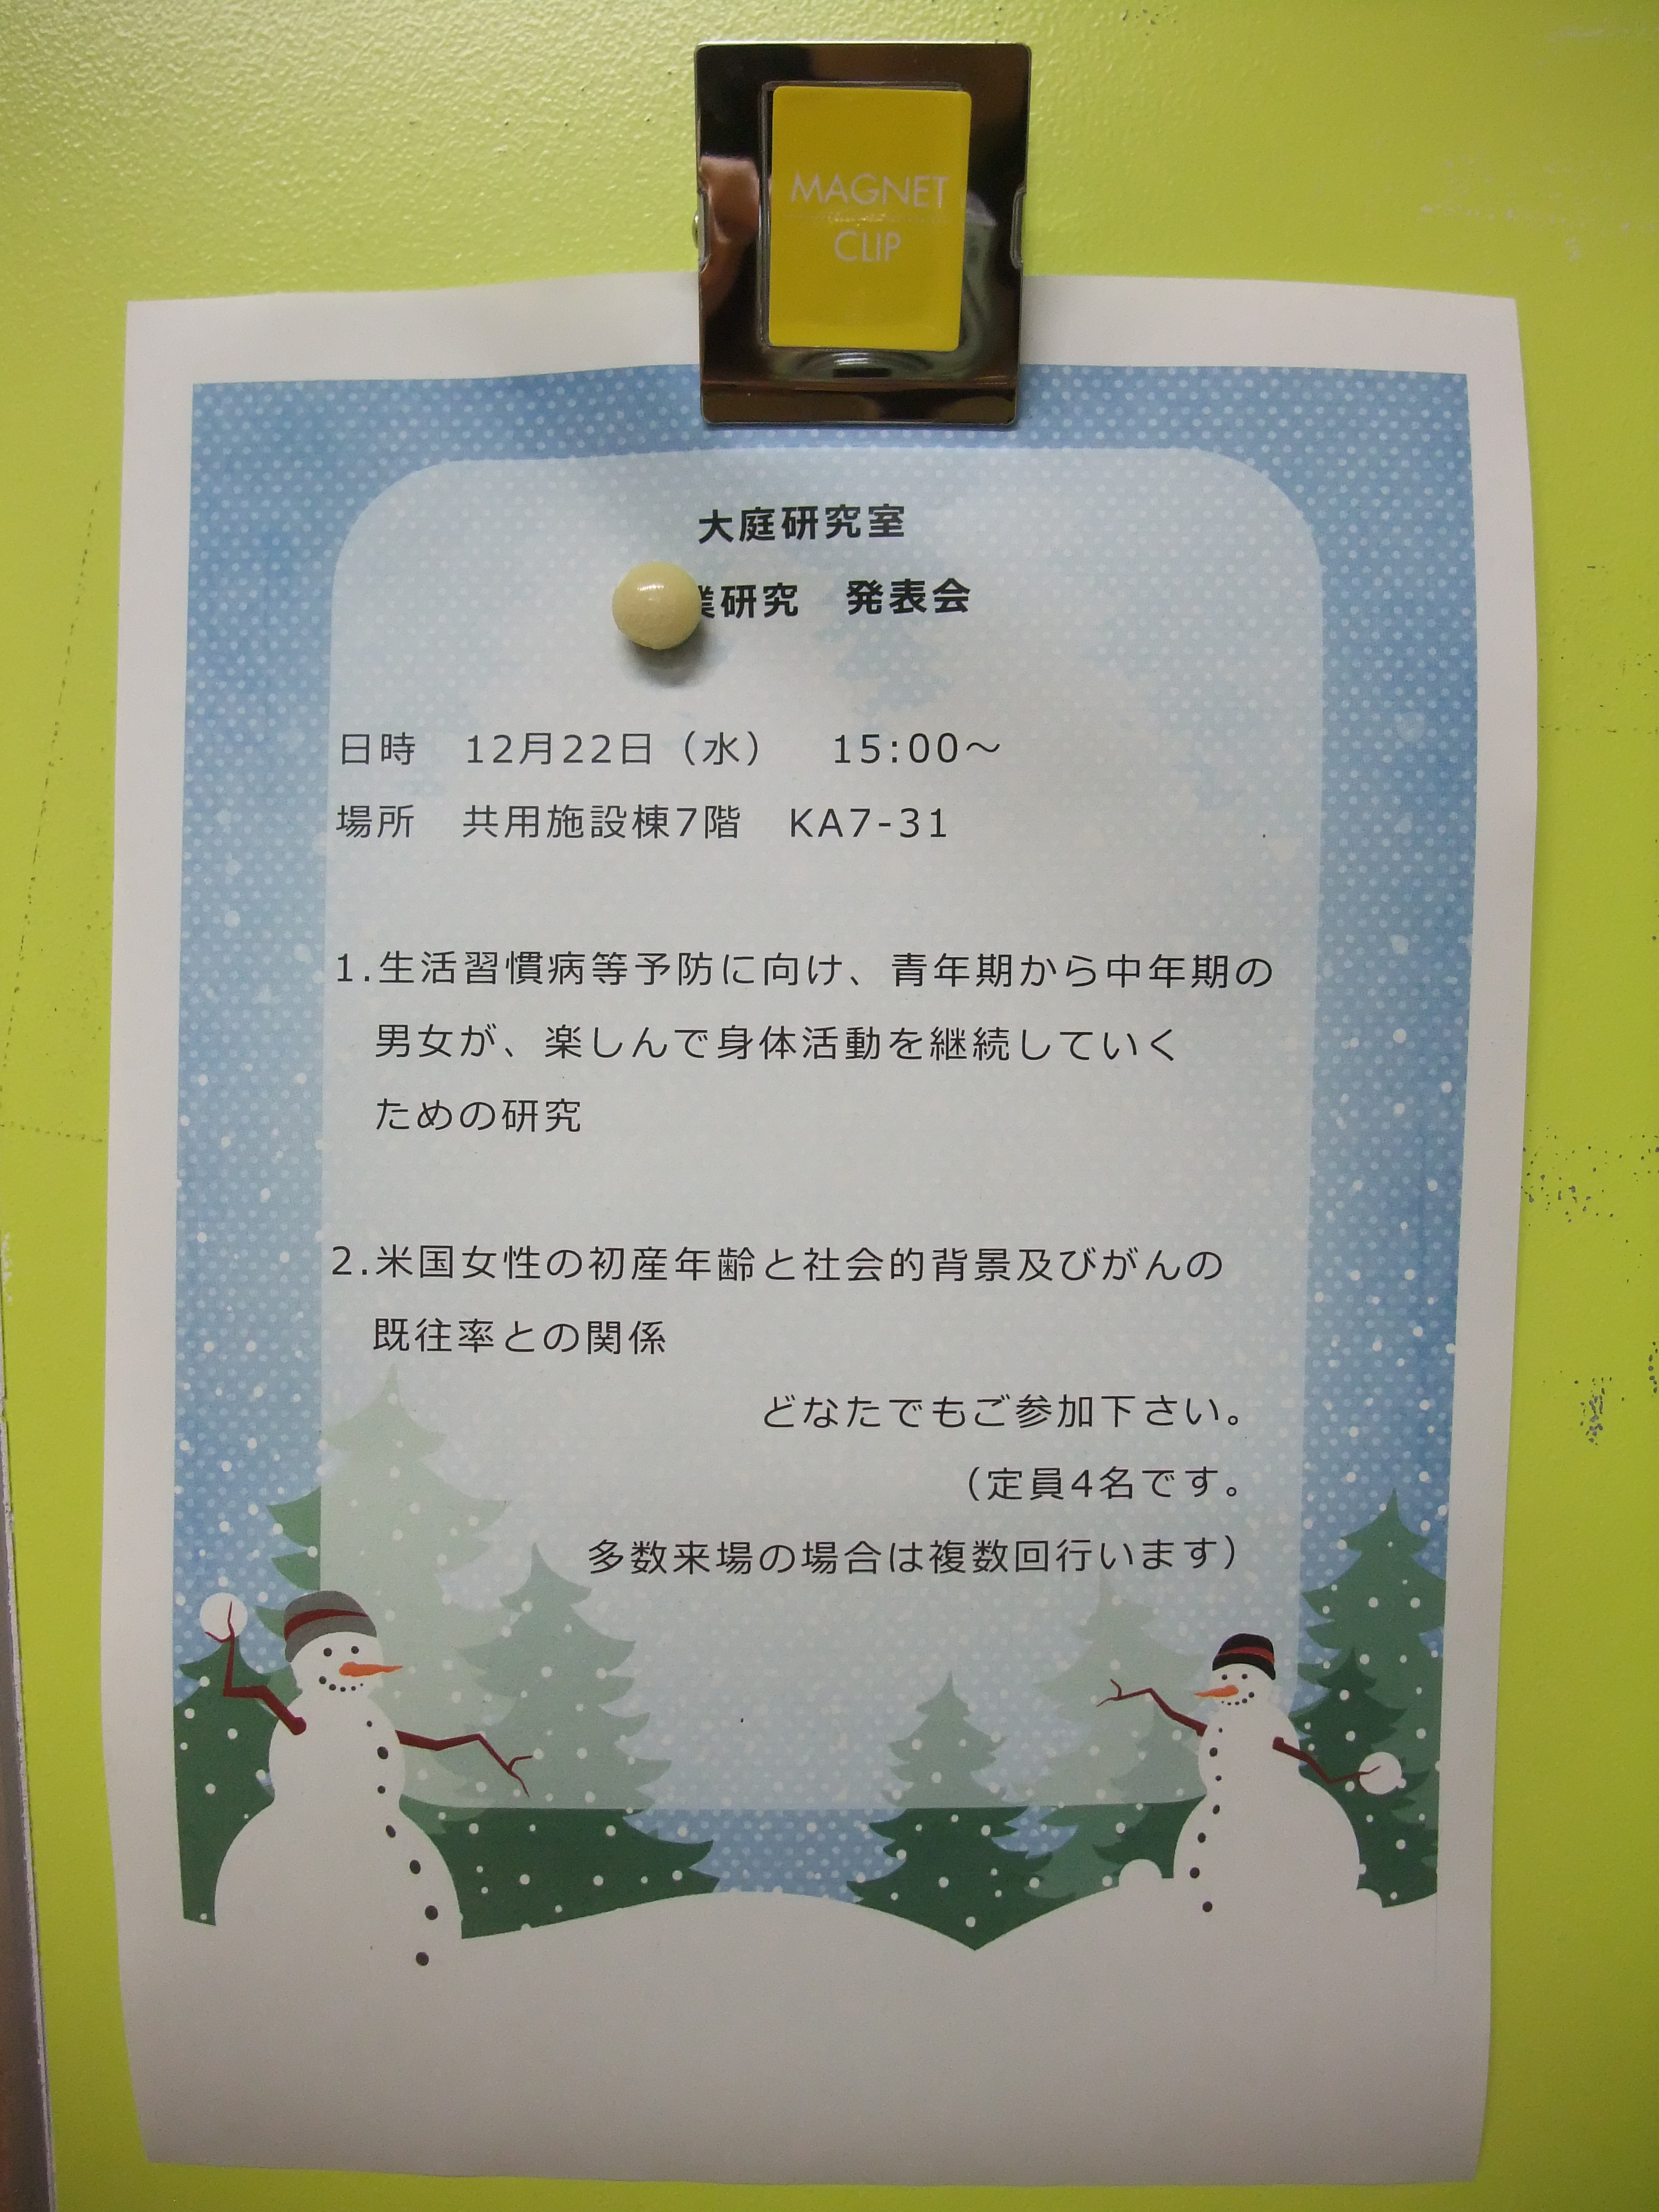 MAGNET
CLIP
大庭研究室
業研究　発表会
日時　12月22日（水）　15:00～
場所　共用施設棟7階　KA7-31
1.生活習慣病等予防に向け、青年期から中年期の
男女が、楽しんで身体活動を継続していく
ための研究
2.米国女性の初産年齢と社会的背景及びがんの
既往率との関係
どなたでもご参加下さい。
（定員4名です。
多数来場の場合は複数回行います）